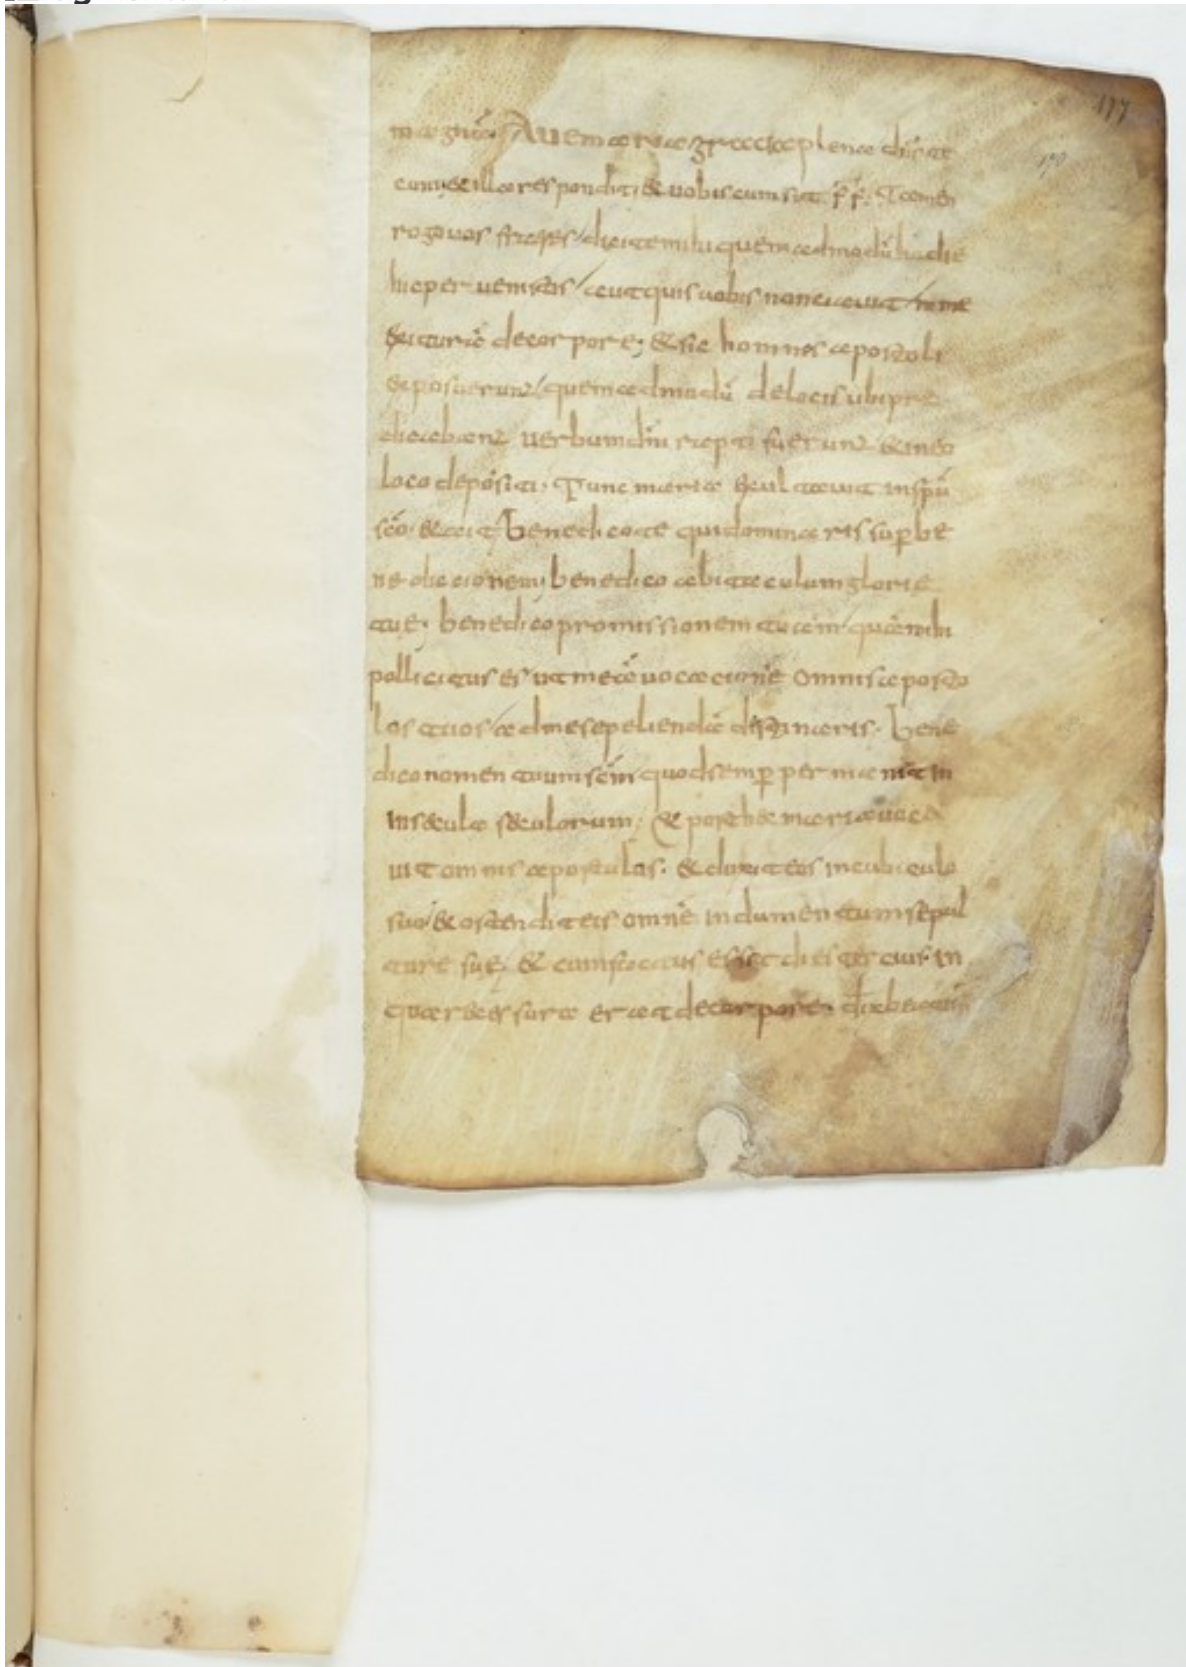 177
190
magna. Aue maria gracia plena dn̄s te
cum; & illa respondit; & uobis cum sit f̄f̄. Tamen
rogo uos fratres / dicite mihi quemadmodū hodie
huc peruenistis / aut quis uobis nunciauit
exiturā de corpore; & sic homnes apostoli
exposuerunt / quemadmodū de locis ubi pre
dicabant uerbum dn̄i rapti fuerunt & in eo
loco depositi. Tunc maria exultauit in sp̄u
sc̄o. & ait Benedico te qui dominaris sup̄ be
nediccionem; benedico abitaculum glorie
tue. benedico promissionem tuam / quā mihi
pollicitus es / ut meā uocacionē omnis aposto
los tuos / ad me sepeliendā destinaris. Bene
dico nomen tuum sc̄m quod semp̄ permanit in
in saecula saeculorum; & post haec maria uoca
uit omnis apostulos. & duxit eos in cubiculo
suo / & ostendit eis omnē indumentum sepul
ture suę; & cum factus esset dies tercius. in
qua recessura erat de corpore.